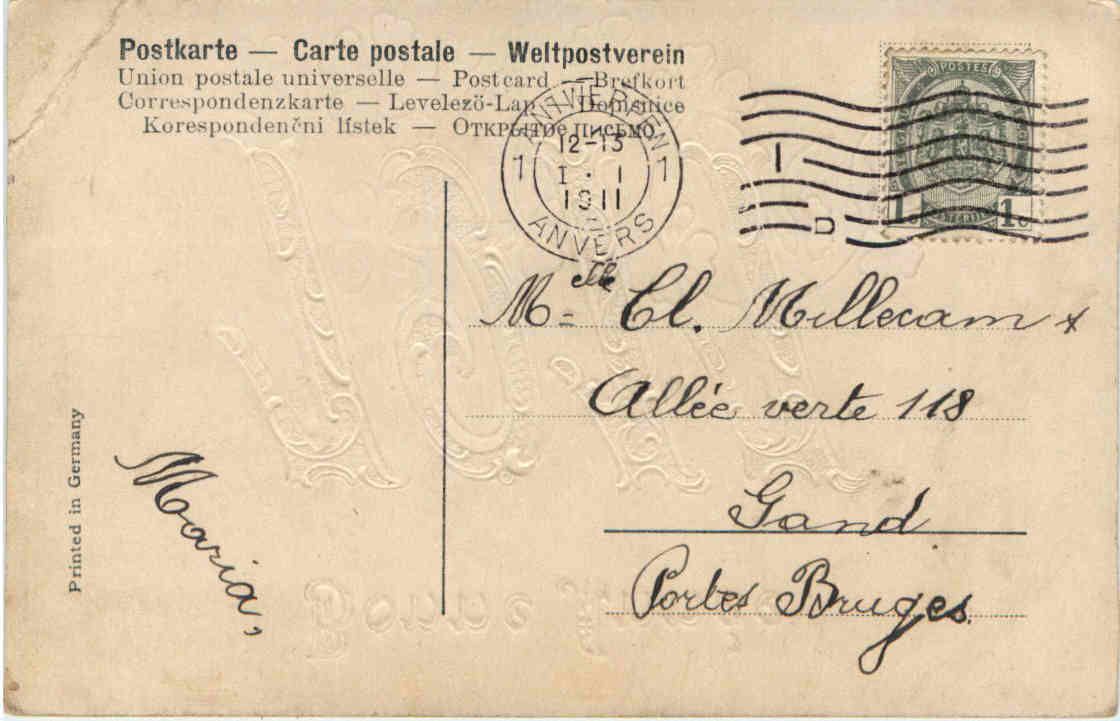 Postkarte — Carte postale — Weltpostverein
Union postale universelle — Postcard — Brefkort
Correspondenzkarte — Levelező-Lap — Dopisnice
Korespondenční lístek — Открытое письмо
ANTWERPEN
1 12-13 1
I · I
1911
ANVERS
POSTES
1c 1c
Melle Cl. Millecam
Allée verte 118
Gand
Portes Bruges.
Maria,
Printed in Germany
Bonne